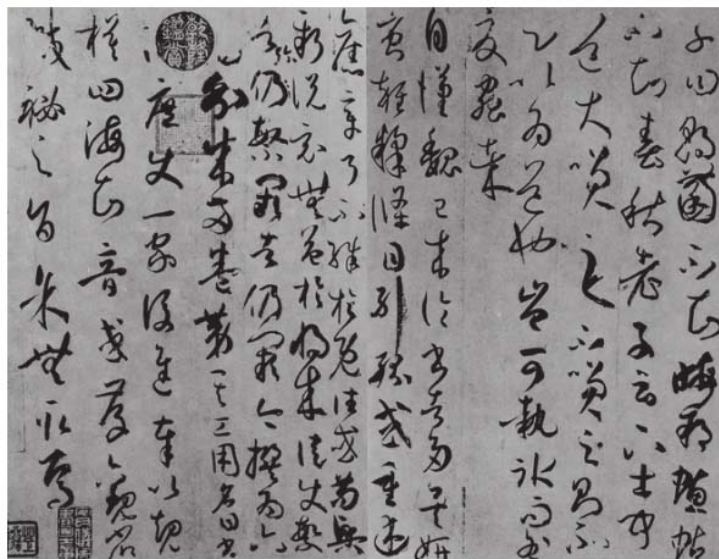 子曰朝菌不知晦朔蟪蛄
不知春秋老子云下士聞
道大笑之不笑之則不
足以為道也豈可執冰而咎
夏蟲哉
自漢魏已來論書者多矣妍
蚩雜糅條目糾紛或重述
舊章了不殊於既往或苟興
新說竟無益於將來徒使繁
者彌繁闕者仍闕今撰為六
篇分成兩卷第其工用名曰書
譜庶使一家後進奉以規
模四海知音或存觀省
緘秘之旨余無取焉